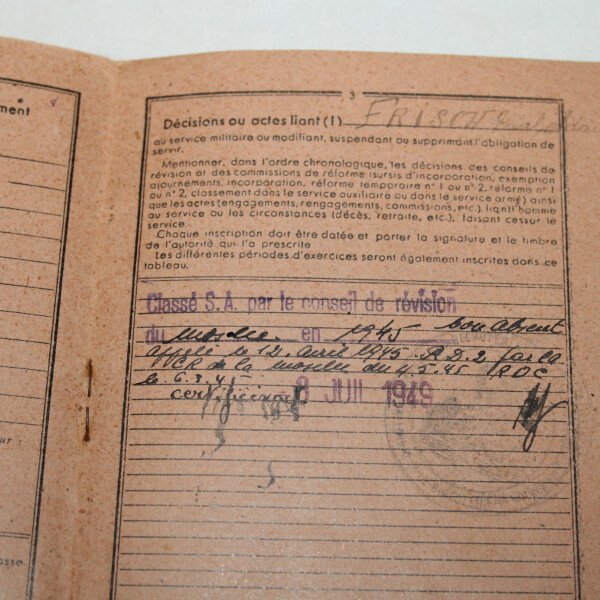 ment
3
Décisions ou actes liant (1) FRISCH
au service militaire ou modifiant, suspendant ou supprimant l'obligation de
servir.
Mentionner, dans l'ordre chronologique, les décisions des conseils de
révision et des commissions de réforme (sursis d'incorporation, exemption
ajournements, incorporation, réforme temporaire n° 1 ou n° 2, réforme n° 1
ou n° 2, classement dans le service auxiliaire ou dans le service armé) ainsi
que les actes (engagements, rengagements, commissions, etc.), liant l'homme
au service ou les circonstances (décès, retraite, etc.), faisant cesser le
service.
Chaque inscription doit être datée et porter la signature et le timbre
de l'autorité qui l'a prescrite
Les différentes périodes d'exercices seront également inscrites dans ce
tableau.
Classé S.A. par le conseil de révision
du Moselle en 1945 bon absent
appelé le 12 avril 1945 R.D.2 par la
de la Moselle du 4.5.45 RDC
le 6.3.4
8 JUIL 1949
ur :
asse